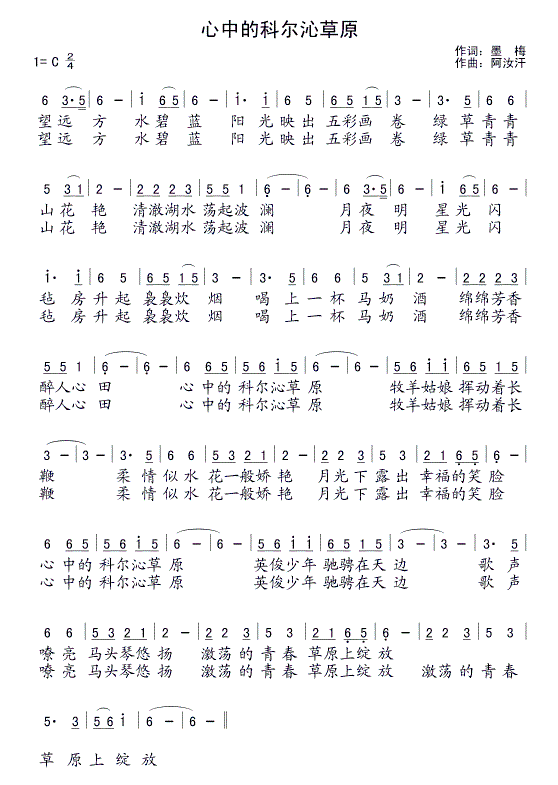 心中的科尔沁草原
1= C 2/4
作词：墨 梅
作曲：阿汝汗
6 3·5 | 6 - | i 6 5 | 6 - | i· i | 6 2 2 | 6 5 1 5 | 6 - | 6 3·5 | 6 6 |
望远 方 水碧 蓝 阳 光映出 五彩画 卷 绿草青青
望远 方 水碧 蓝 阳 光映出 五彩画 卷 绿草青青
5 3 1 | 2 - | 2 2 2 3 | 5 5 5 1 | 6 - | 6 - | 6 3·5 | 6 - | i 6 5 | 6 - |
山花 艳 清澈湖水 荡起波 澜 月夜 明 星光 闪
山花 艳 清澈湖水 荡起波 澜 月夜 明 星光 闪
i· i | 6 2 2 | 6 5 1 5 | 6 - | 3· 3 | 6 6 6 | 5 3 1 | 2 - | 2 2 2 3 |
毡 房升起 袅袅炊 烟 喝 上一杯 马奶 酒 绵绵芳香
毡 房升起 袅袅炊 烟 喝 上一杯 马奶 酒 绵绵芳香
5 5 1 | 6 - | 6 - | 6 6 5 | 3 5 i 5 | 6 - | 6 - | 5 6 i i | 6 5 6 5 |
醉人心 田 心中的 科尔沁草 原 牧羊姑娘 挥动着长
醉人心 田 心中的 科尔沁草 原 牧羊姑娘 挥动着长
3 - | 3 - | 3· 5 | 6 6 | 5 3 2 1 | 2 - | 2 2 3 | 5 5 | 2 1 6 5 | 6 - |
鞭 柔 情似水 花一般娇 艳 月光下 露出 幸福的笑 脸
鞭 柔 情似水 花一般娇 艳 月光下 露出 幸福的笑 脸
6 6 5 | 3 5 i 5 | 6 - | 6 - | 5 6 i i | 6 5 6 5 | 3 - | 3 - | 3· 5 |
心中的 科尔沁草 原 英俊少年 驰骋在天 边 歌声
心中的 科尔沁草 原 英俊少年 驰骋在天 边 歌声
6 6 | 5 3 2 1 | 2 - | 2 2 3 | 5 5 | 2 1 6 5 | 6 - | 6 - | 2 2 3 | 5 5 |
嘹亮 马头琴悠 扬 激荡的 青春 草原上绽 放
嘹亮 马头琴悠 扬 激荡的 青春 草原上绽 放 激荡的 青春
5· 3 | 5 6 i | 6 - | 6 - ‖
草 原上绽 放